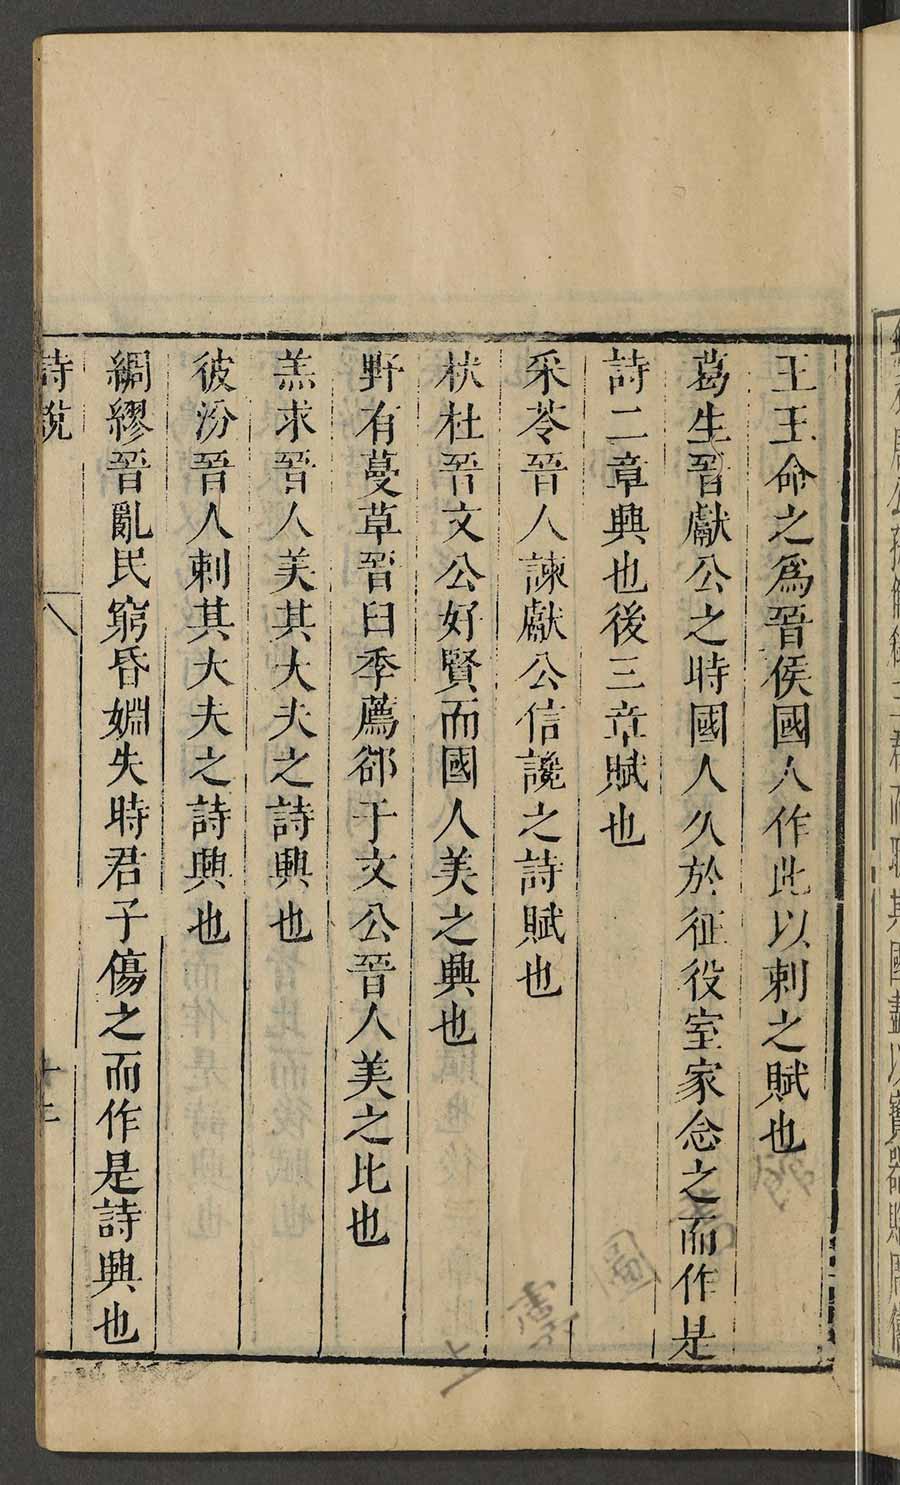 王王命之為晉侯國人作此以刺之賦也
葛生晉獻公之時國人久於征役室家念之而作是
詩二章興也後三章賦也
采苓晉人諫獻公信讒之詩賦也
杕杜晉文公好賢而國人美之興也
野有蔓草晉臼季薦郤于文公晉人美之比也
羔求晉人美其大夫之詩興也
彼汾晉人刺其大夫之詩興也
綢繆晉亂民窮昏姻失時君子傷之而作是詩興也
詩說